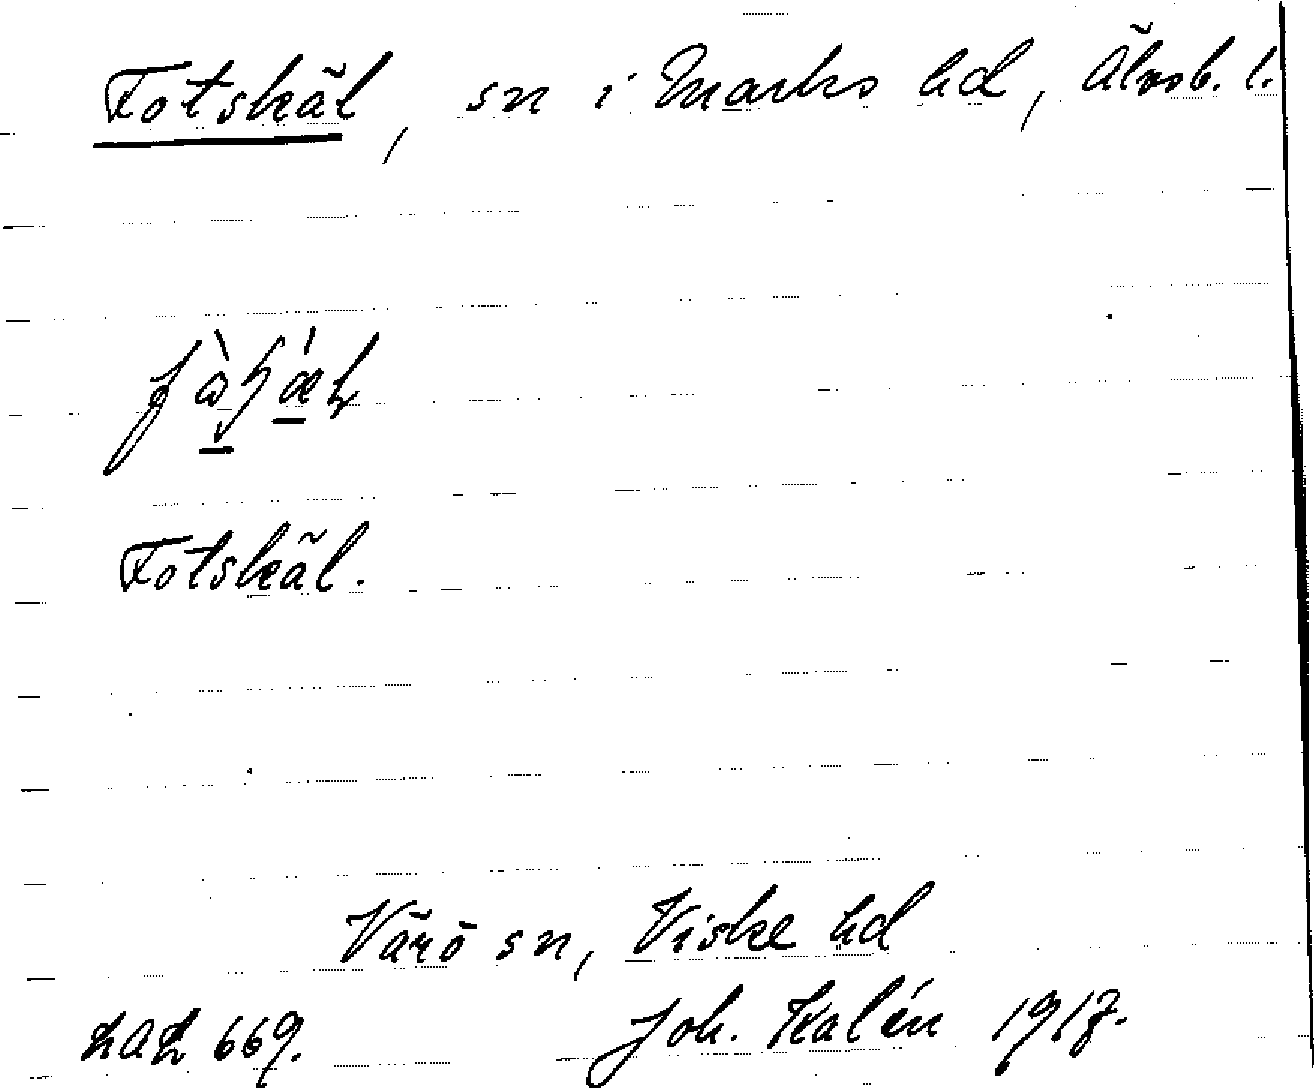 Fotskäl, sn i Marks hd, Älvsb. l.
Fotskäl.
Värö sn, Viske hd
LAL 669. Joh. Kalén 1917.